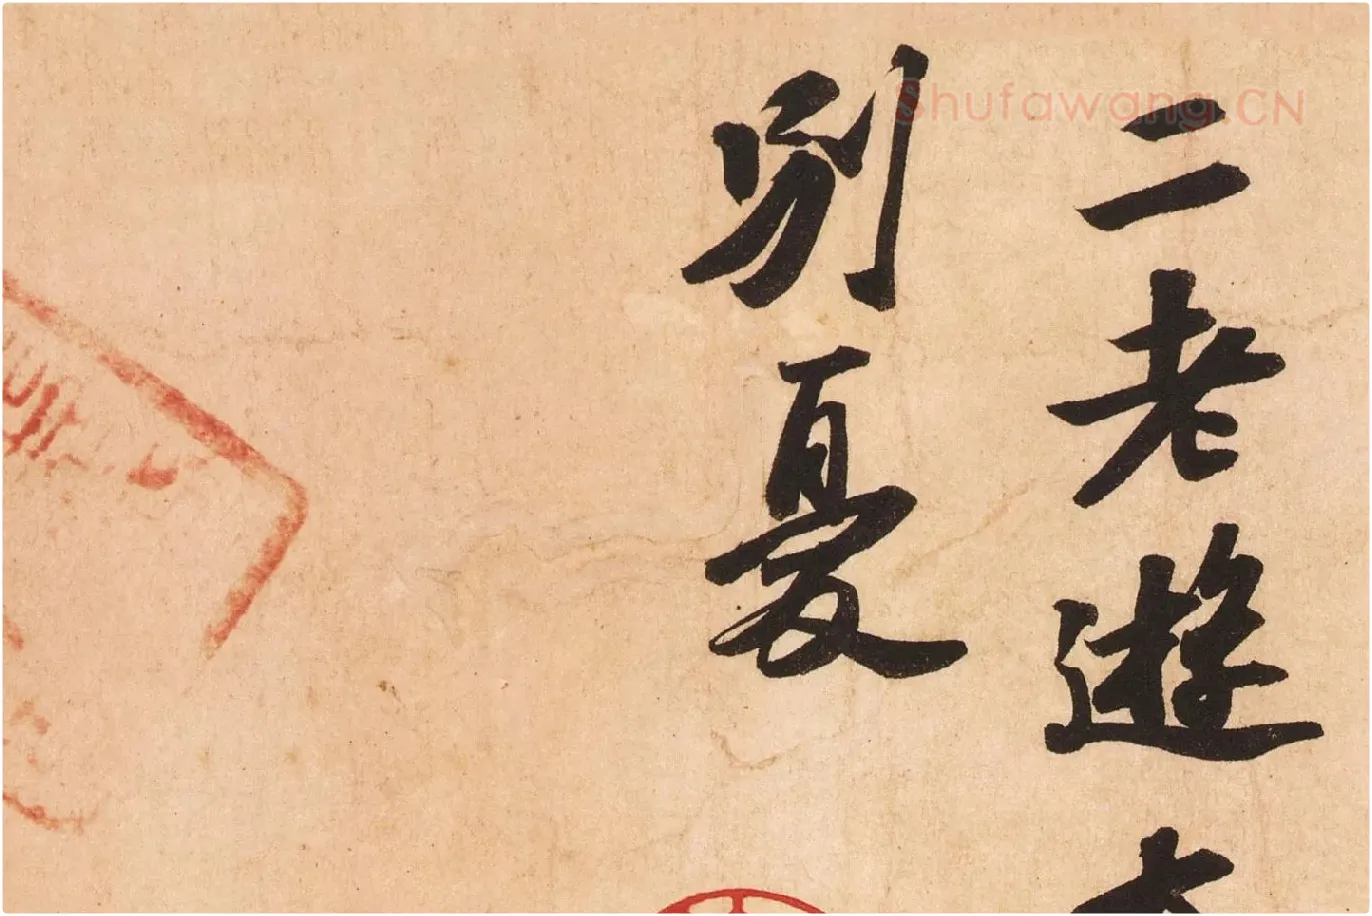 Shufawang.CN
二老遊大
別憂